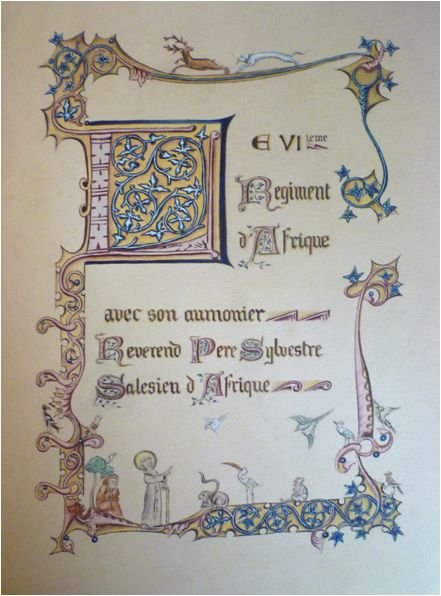 LE VI ieme
Regiment
d'Afrique
avec son aumonier
Reverend Pere Sylvestre
Salesien d'Afrique